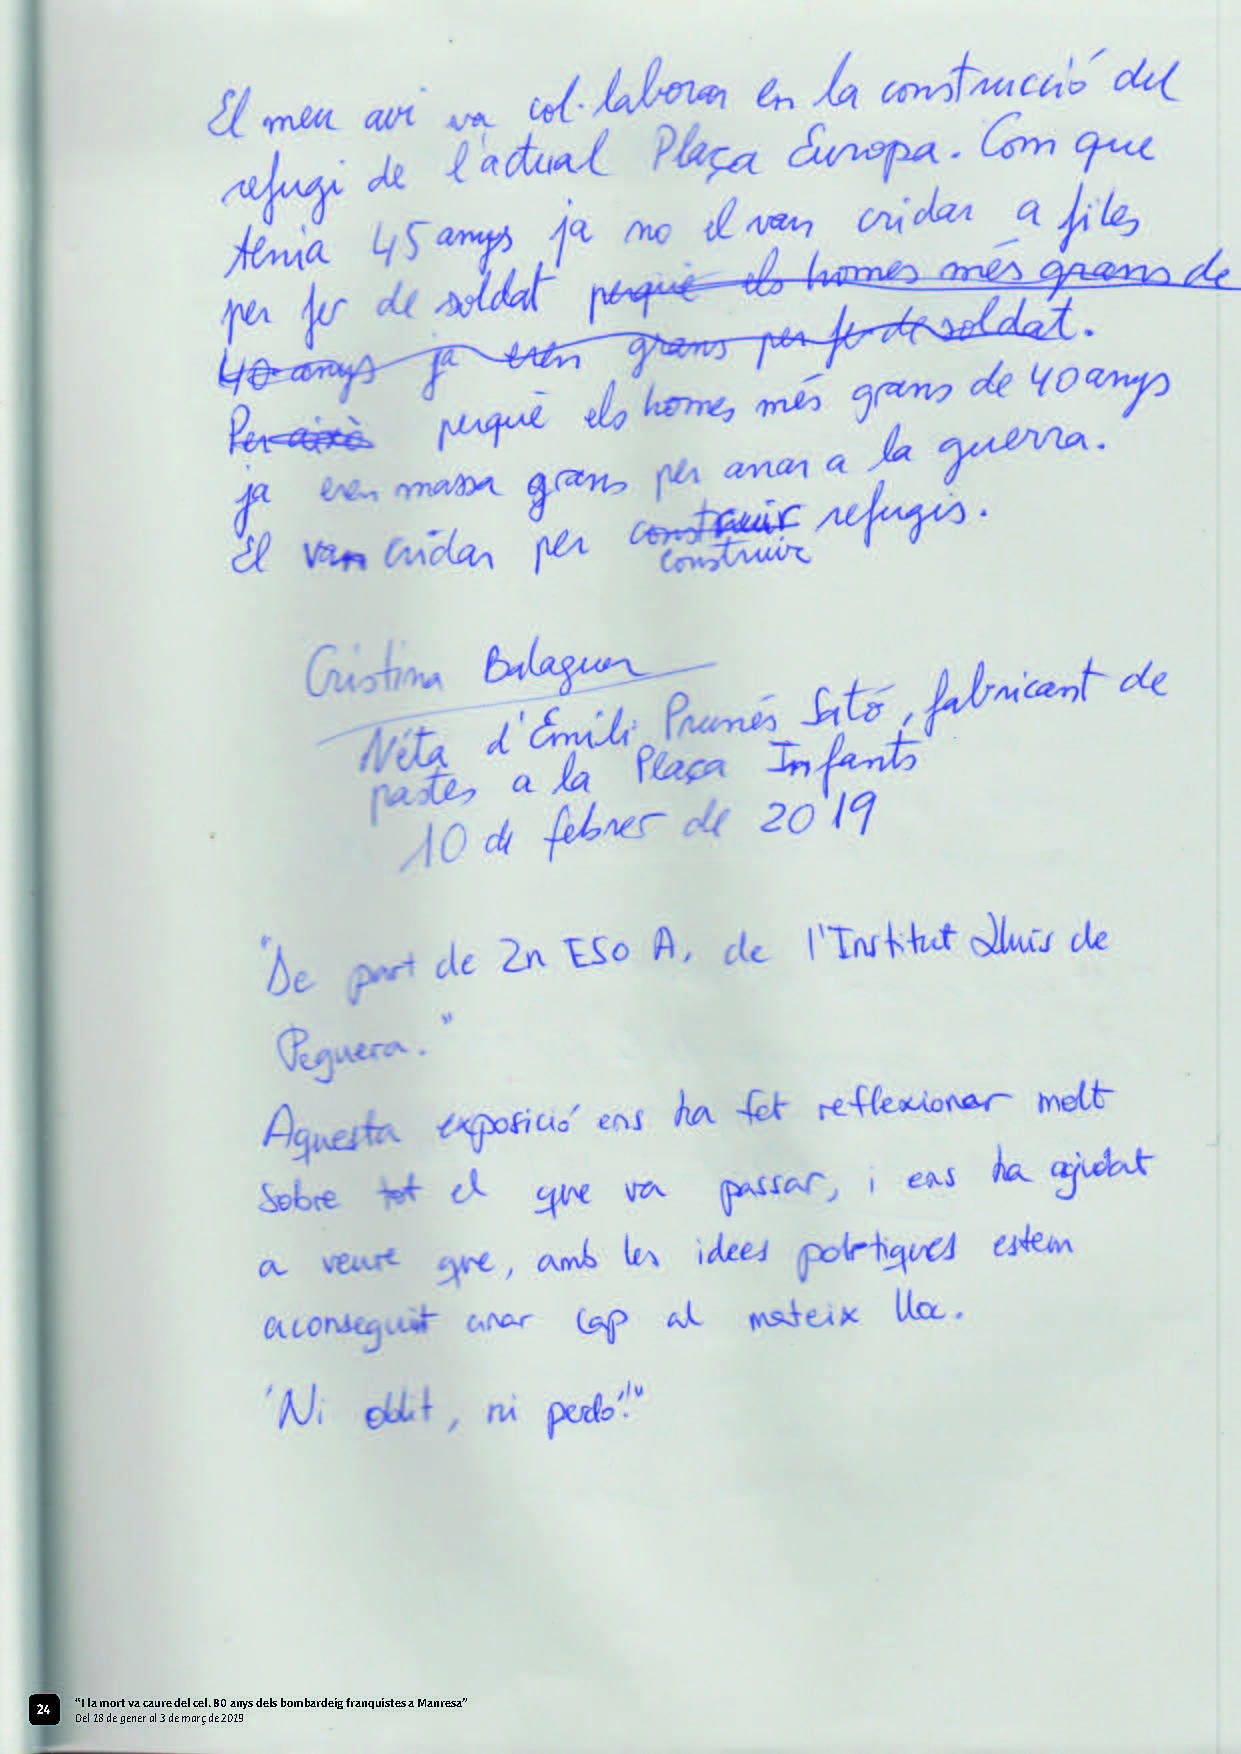 El meu avi va col·laborar en la construcció del
refugi de l'actual Plaça Europa. Com que
tenia 45 anys, ja no el van cridar a files
per fer de soldat perquè els homes més grans de
40 anys ja eren grans per fer de soldat.
Per això perquè els homes més grans de 40 anys
ja eren massa grans per anar a la guerra.
El van cridar per construir refugis.
construir
Cristina Balaguer
Néta d'Emili Prunés Sató, fabricant de
pastes a la Plaça Infants
10 de febrer de 2019
"De part de 2n ESO A, de l'Institut Lluís de
Peguera."
Aquesta exposició ens ha fet reflexionar molt
sobre tot el que va passar, i ens ha ajudat
a veure que, amb les idees polítiques estem
aconseguit anar cap al mateix lloc.
'Ni oblit, ni perdó!'"
24
"I la mort va caure del cel. 80 anys dels bombardeig franquistes a Manresa"
Del 18 de gener al 3 de març de 2019